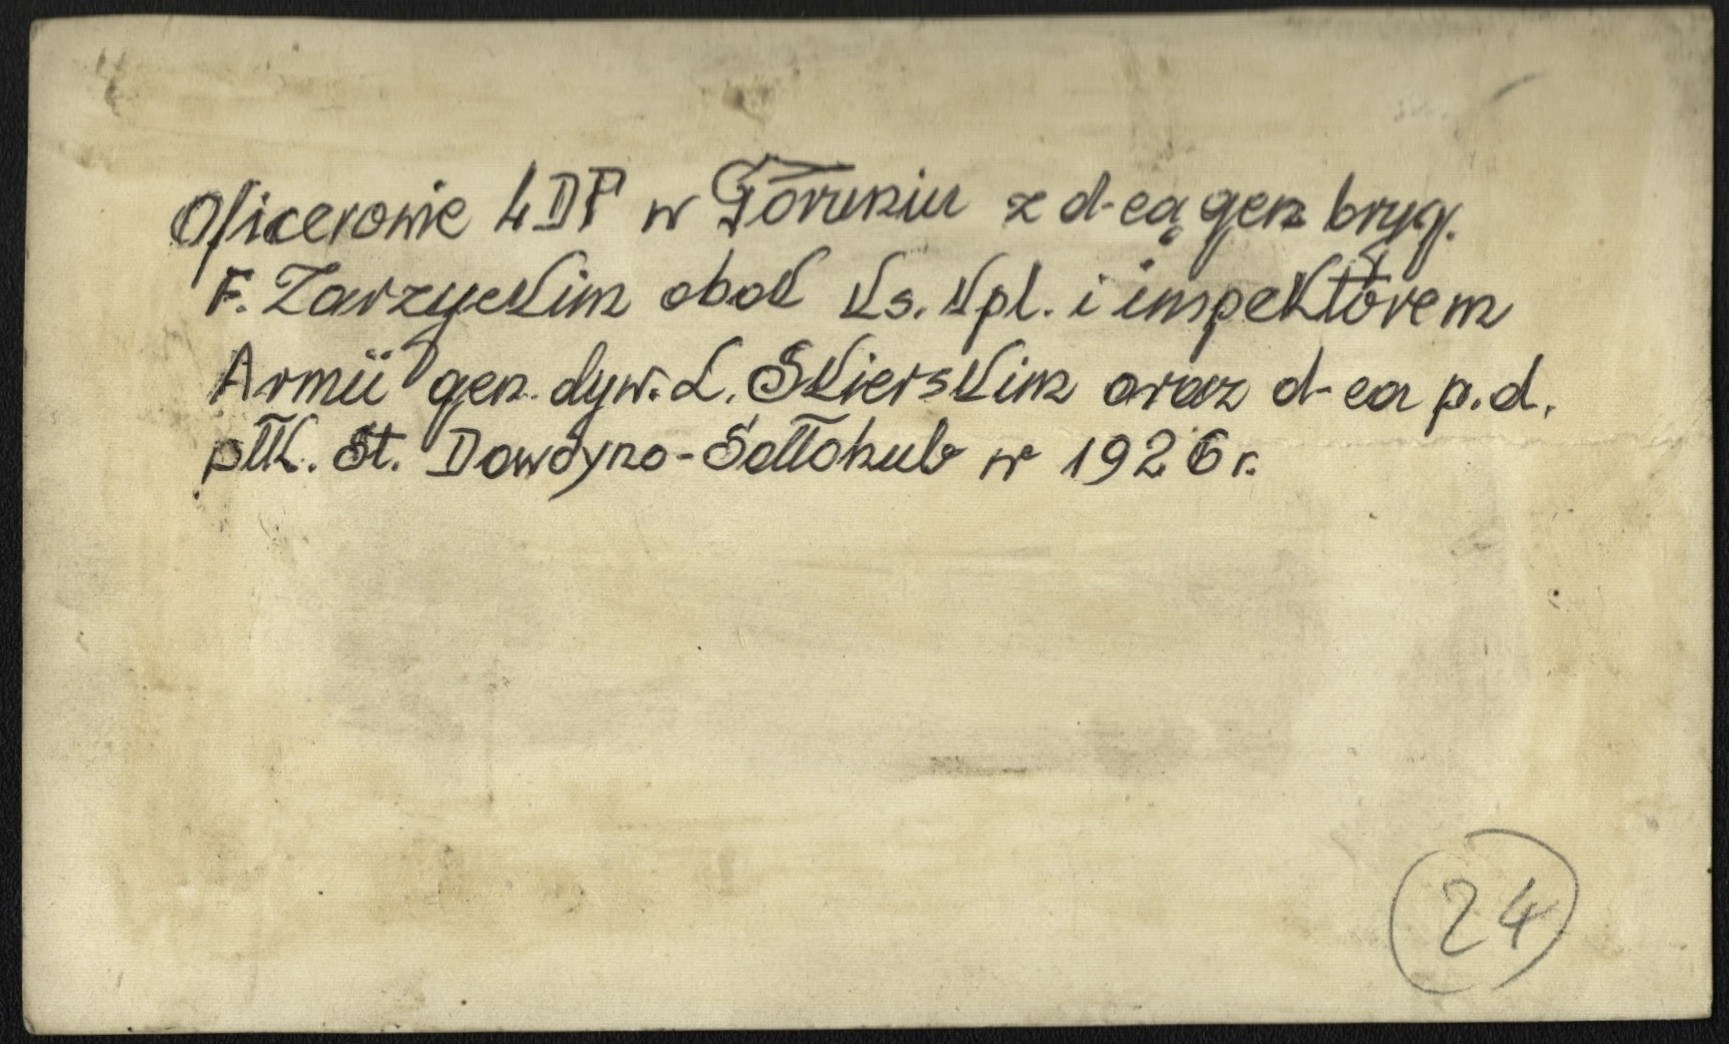 Oficerowie 4 DP w Toruniu z d-cą gen bryg.
F. Zarzyckim obok Ks. Kpl. i inspektorem
Armii gen. dyw. L. Skierskim oraz d-ca p.d.
płk. St. Dowoyno-Sołłohub w 1926 r.
24